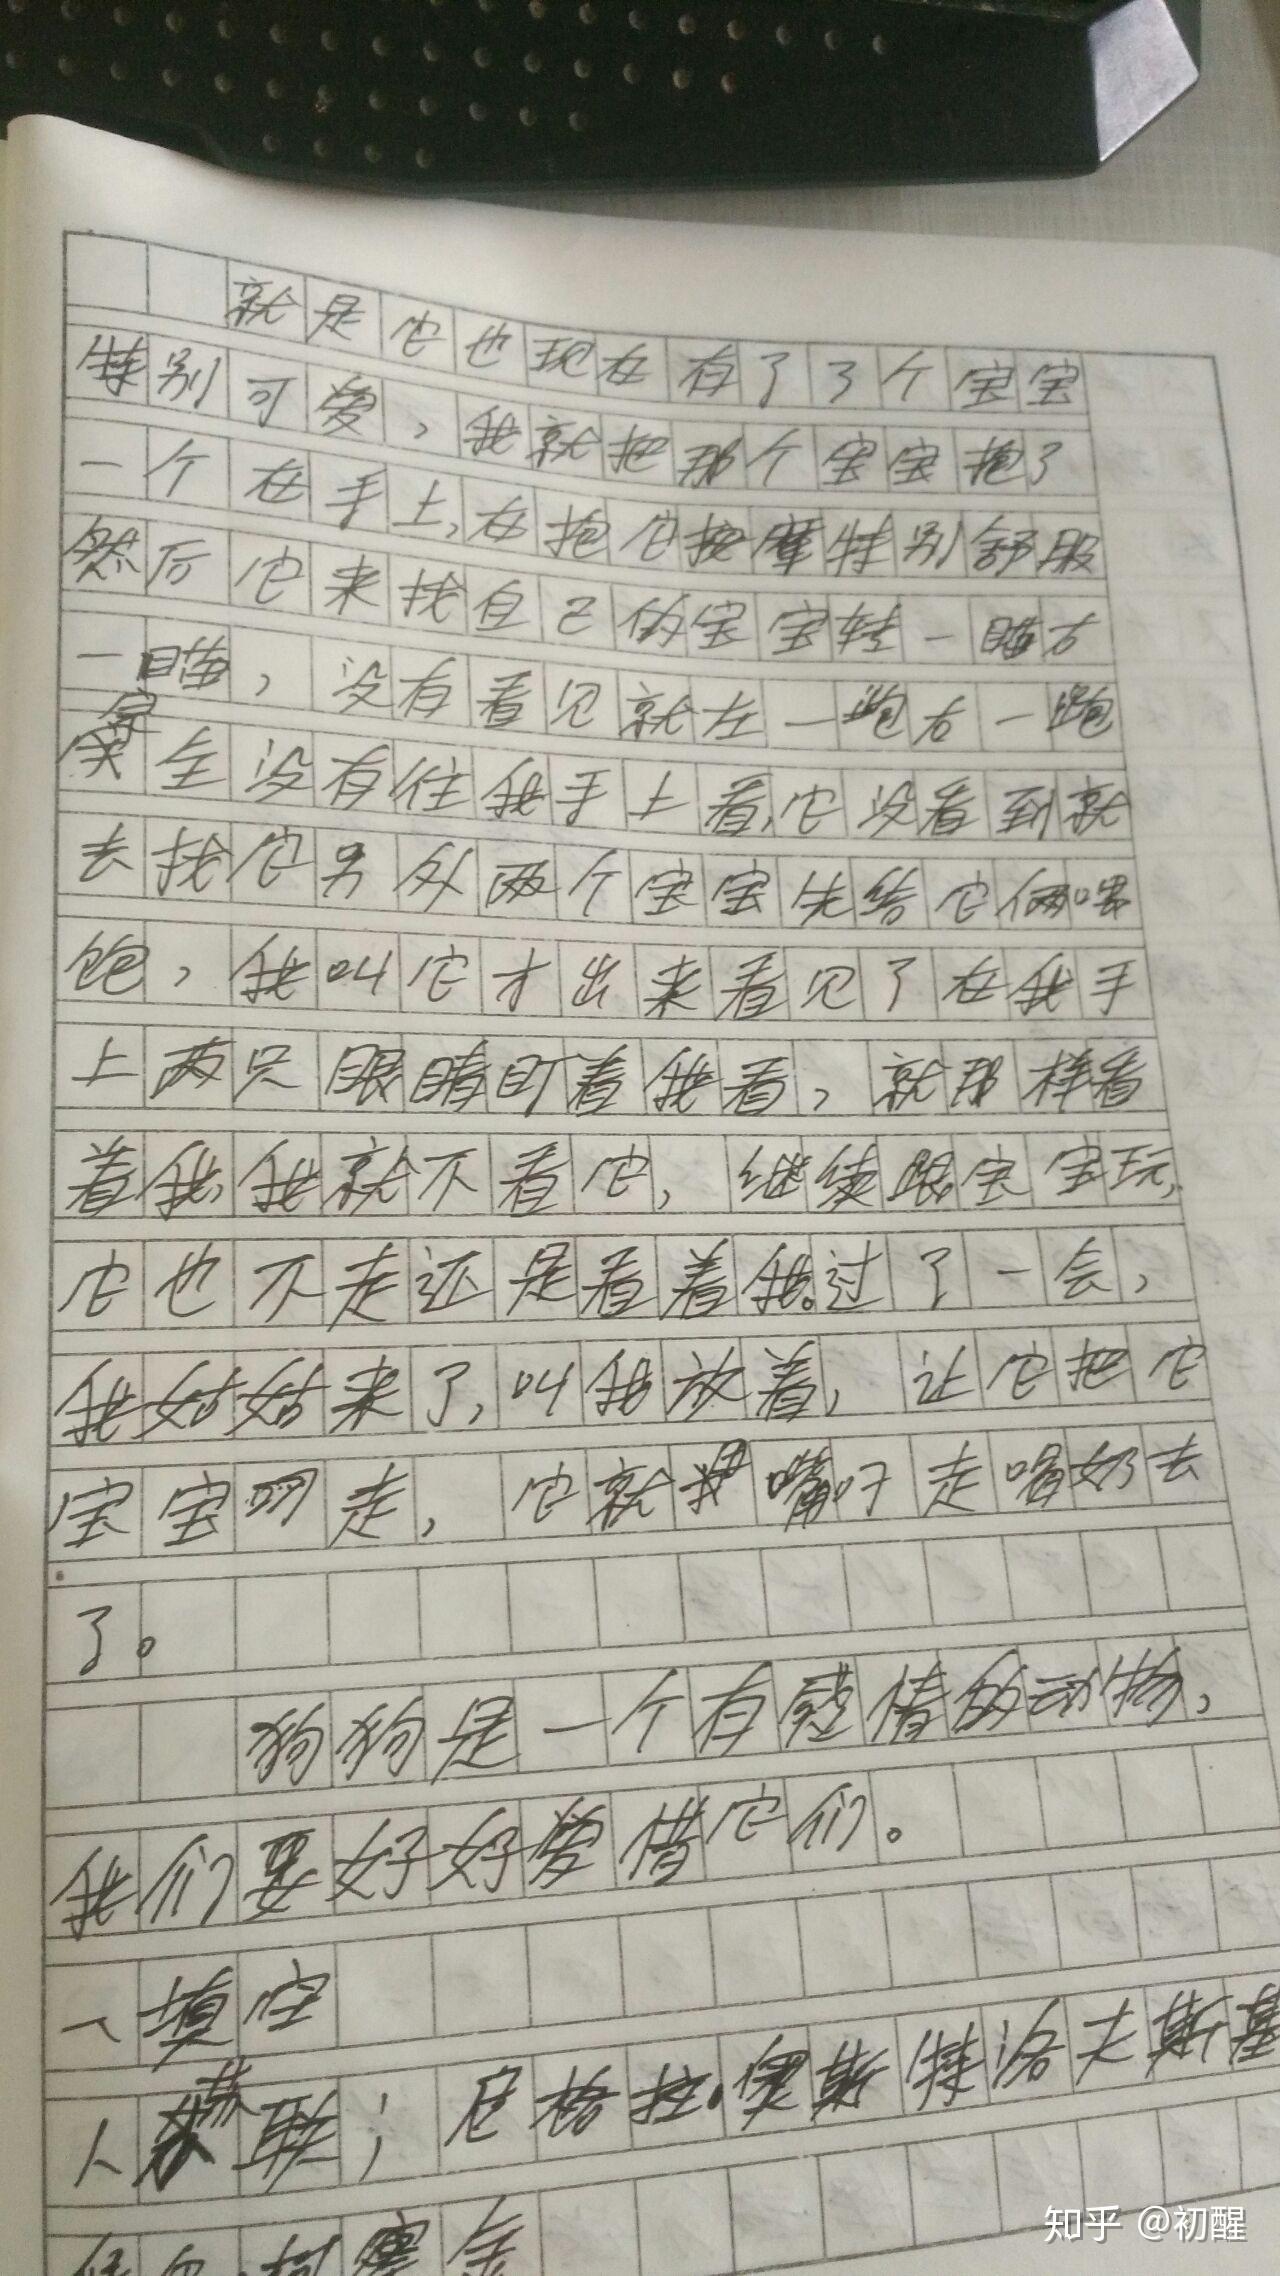 就是它也现在有了3个宝宝
特别可爱，我就把那个宝宝抱了
一个在手上,在抱它按摩特别舒服
然后它来找自己的宝宝转一瞄右
一瞄，没有看见就左一跑右一跑
完全没有往我手上看,它没看到就
去找它另外两个宝宝先给它俩喂
饱，我叫它才出来看见了在我手
上两只眼睛盯着我看，就那样看
着我,我就不看它，继续跟宝宝玩,
它也不走还是看着我。过了一会，
我姑姑来了,叫我放着，让它把它
宝宝叨走，它就用嘴叼走喂奶去
了。
狗狗是一个有感情的动物，
我们要好好爱惜它们。
一填空
1、苏联；尼格拉.奥斯特洛夫斯基
保尔.柯察金
知乎 @初醒